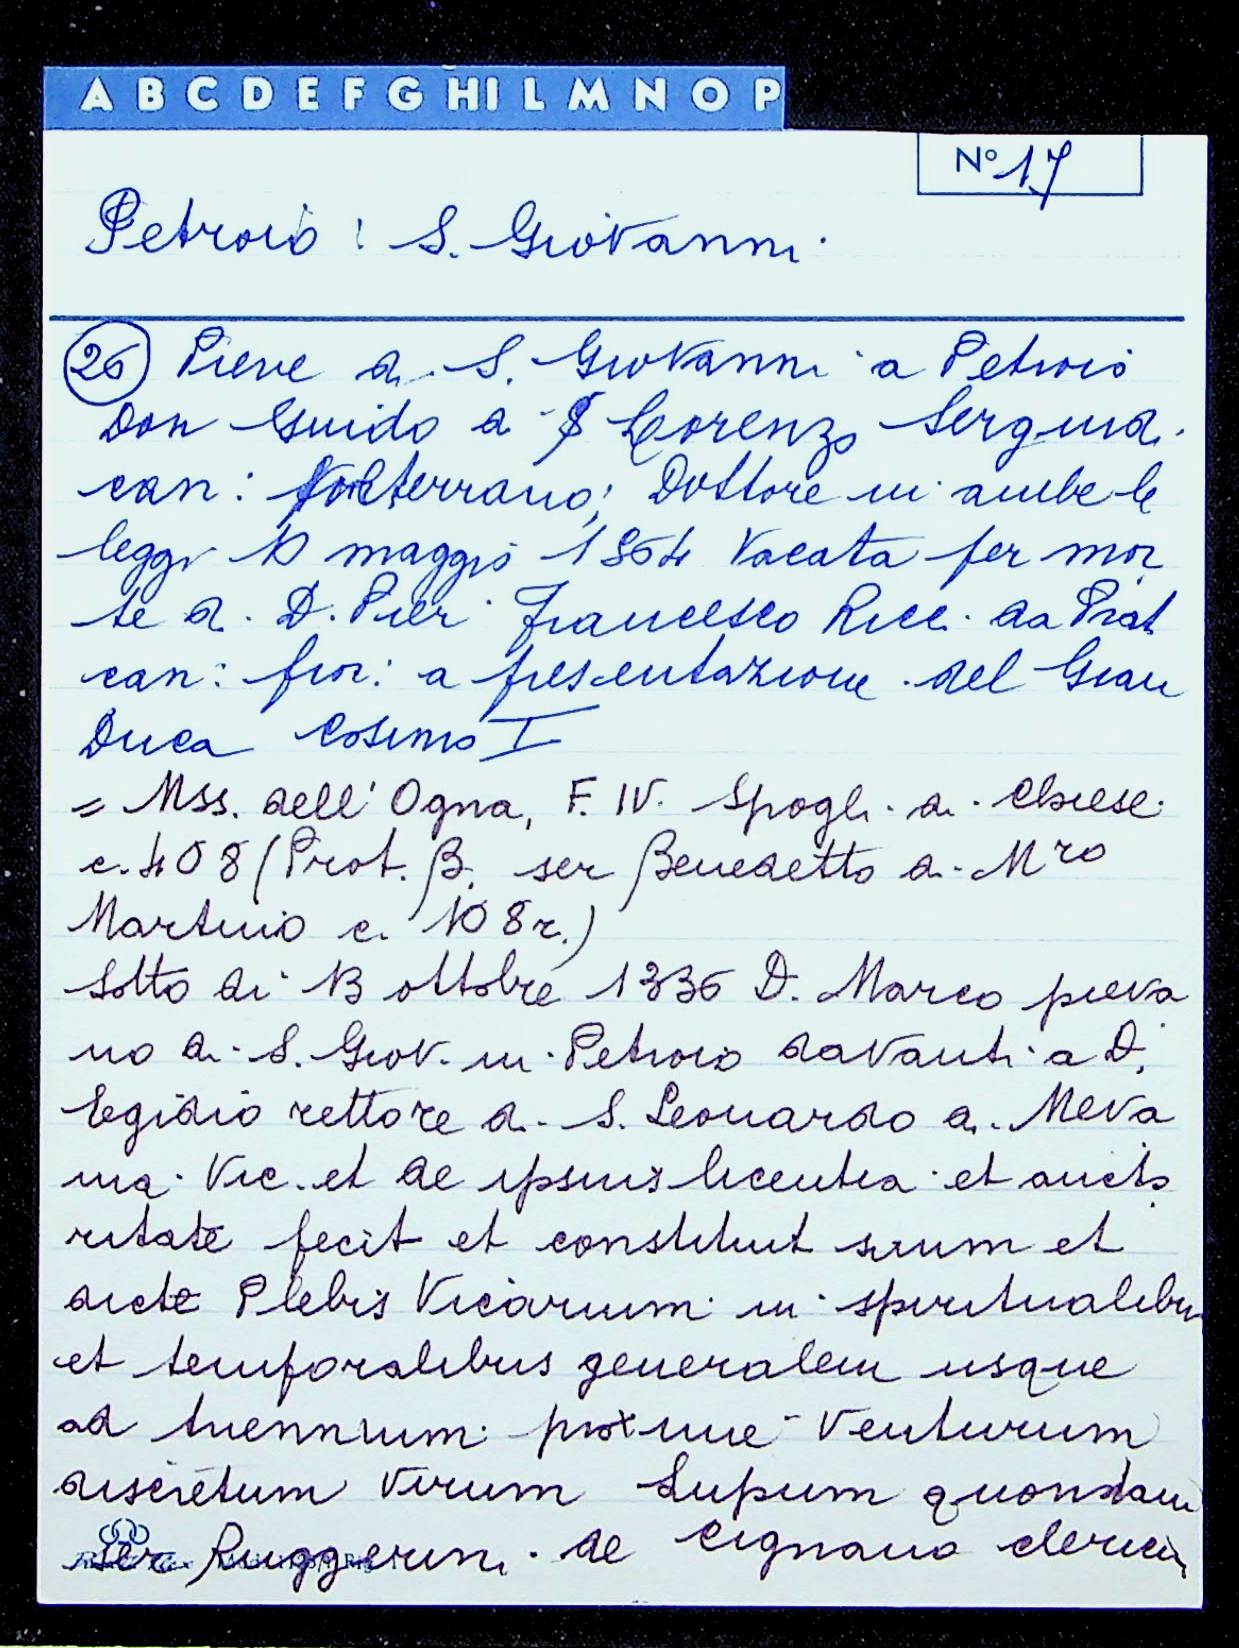 A B C D E F G HI L M N O P
N° 17
Petroio : S. Giovanni.
26 Pieve di S. Giovanni a Petroio
Don Guido di Lorenzo Serguidi
can: Volterrano, Dottore in ambe le
leggi 10 maggio 1564 Vacata per mor
te di D. Pier Francesco Ricci da Prat
can: fior: a presentazione del Gran
Duca Cosimo I
= Mss. dell' Ogna, F. IV. Spogli di Chiese
c. 408 (Prot. B. ser Benedetto di Mro
Martino c. 108r.)
Sotto di 13 ottobre 1336 D. Marco pieva
no di S. Giov. in Petroio davanti a D.
Egidio rettore di S. Leonardo a
Vic. et de ipsius licentia et aucto
ritate fecit et constituit suum et
dicte Plebis Vicarium in spiritualibus
et temporalibus generalem usque
ad triennium proxime venturum
discretum virum Lupum quondam
ser Ruggerini de Cignano clericu